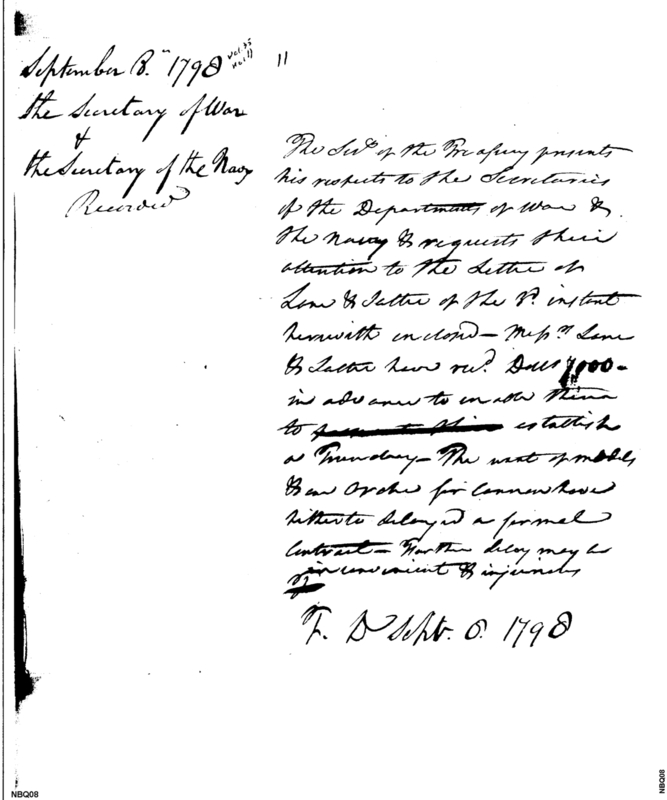 September 8.th 1798
Vol. 25
No. 11
the Secretary of War
&
the Secretary of the Navy
Recorded
11
The Secy. of the Treasury presents
his respects to the Secretaries
of the Departments of War &
the Navy & requests their
attention to the Letter of
Lane & Salter of the instant
herewith inclosed — Messrs. Lane
& Salter have recd. Dolls 7,000-
in advance to enable them
to establish
a Foundery — The want of models
& an Order for Cannon have
hitherto delayed a formal
Contract — Further delay may be
inconvenient & injurious
T. D Sept. 8. 1798
NBQ08
NBQ08